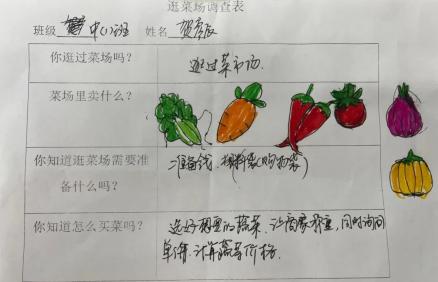 逛菜场调查表
班级 中(1)班 姓名 贺彦辰
你逛过菜场吗?
逛过菜市场.
菜场里卖什么?
你知道逛菜场需要准
备什么吗?
准备钱、塑料袋(购物袋)
你知道怎么买菜吗?
选好想要的蔬菜、让商家称重,同时询问
单价、计算蔬菜价格.